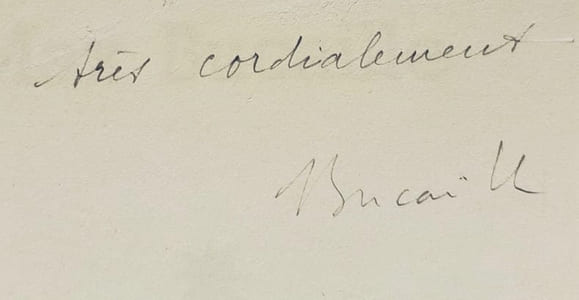 très cordialement
Bucaille